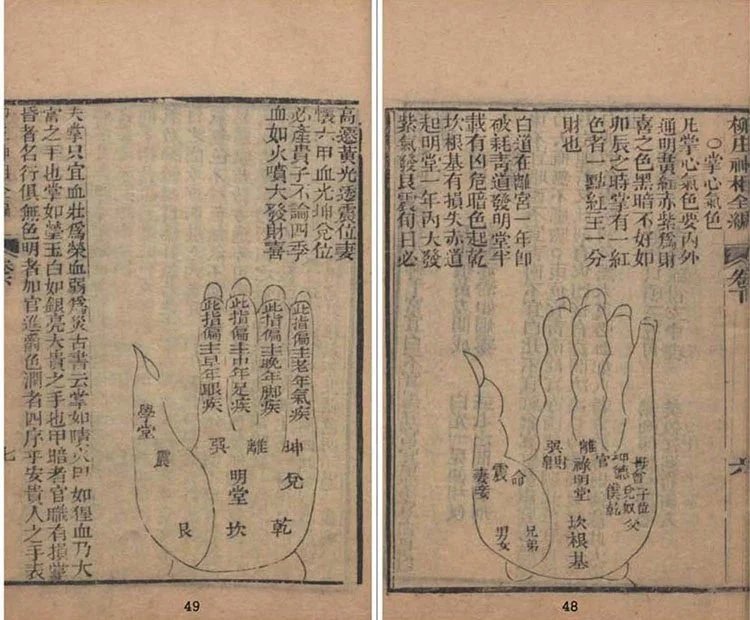 柳庄神相全編
卷下
六
○掌心氣色
凡掌心氣色要內外
通明黃紅赤紫爲財
喜之色黑暗不好如
卯辰之時掌有一紅
色者一點紅主一分
財也
白道在離宮一年卽
破耗青道發明堂牢
載有凶危暗色起乾
坎根基有損失赤道
起明堂一年內大發
紫氣發艮震旬日必
坤
兌奴
僕
乾
父
官
離
祿
明堂
坎根基
巽
財
震
命
妻妾
兄弟
男女
48
高遷黃光透震位妻
懷六甲血光坤兌位
必產貴子不論四季
血如火噴大發財喜
此指偏主老年氣疾
此指偏主晚年脚疾
此指偏主中年足疾
此指偏主早年眼疾
坤
兌
乾
離
明堂
坎
巽
震
艮
學堂
夫掌只宜血壯爲榮血弱爲災古書云掌如火甲如猩血乃大
富之手也掌如瑩玉白如銀亮大貴之手也甲暗者官職有損掌
皆者名行俱無色明者加官進爵色潤者四序平安貴人之手表
七
49